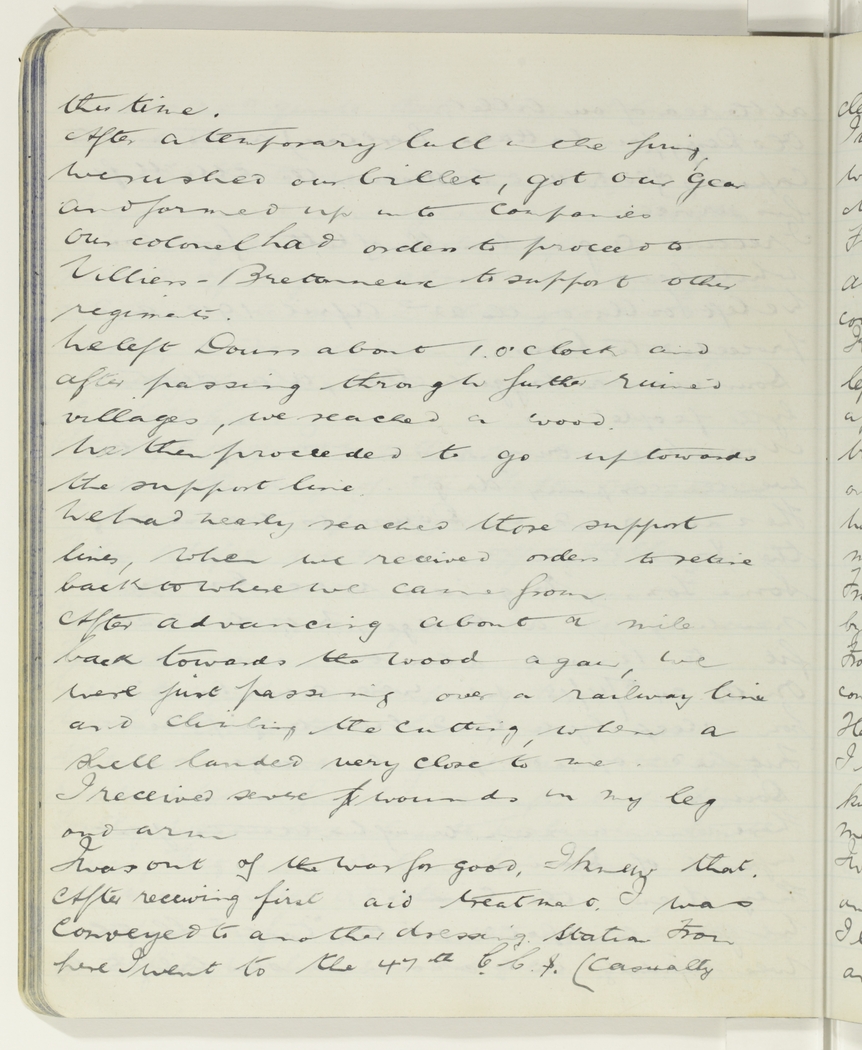 this time.
After a temporary lull in the firing,
we rushed our billet, got our gear
and formed up into companies
Our colonel had orders to proceed to
Villiers-Bretonneux to support other
regiments.
We left Dours about 1.o'clock and
after passing through further ruined
villages, we reached a wood.
We then proceeded to go up towards
the support line.
We had nearly reached those support
lines, when we received orders to retire
back to where we came from
After advancing about a mile
back towards the wood again, we
were just passing over a railway line
and climbing the cutting, when a
shell landed very close to me.
I received severe wounds in my leg
and arm
I was out of the war for good, I knew that.
After receiving first aid treatment. I was
conveyed to another dressing station From
here I went to the 47th C.C.S. (Casualty